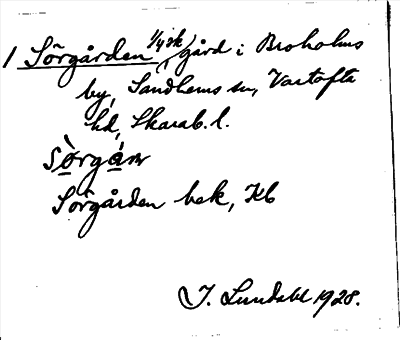 1 Sörgården 1/4 sk gård i Broholms
by, Sandhems sn, Vartofta
hd, Skarab. l.
sòrgá̱n
Sörgården bek, Kb
J. Lundahl 1928.